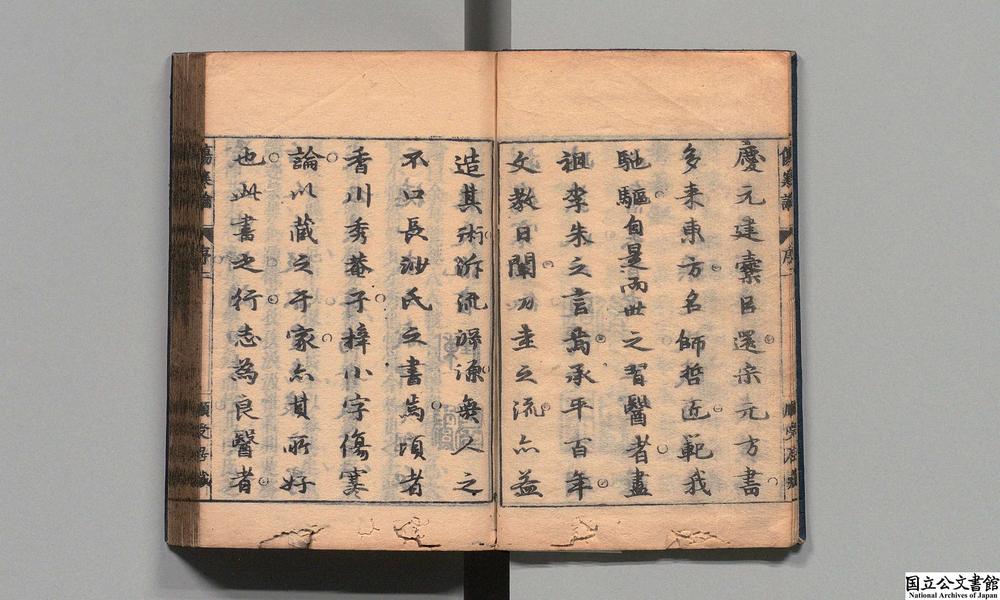 慶元建櫜呂還宋元方書
多来東方名師哲匠範我
馳驅自是而世之習醫者盡
祖李朱之言焉承平百年
文教日闡刀圭之流亦益
造其術泝流溯源無人之
不口長沙氏之書焉頃者
香川秀菴子梓小字傷寒
論以藏之于家亦其所好
也此書之行志為良醫者
傷寒論
序二
国立公文書館
National Archives of Japan